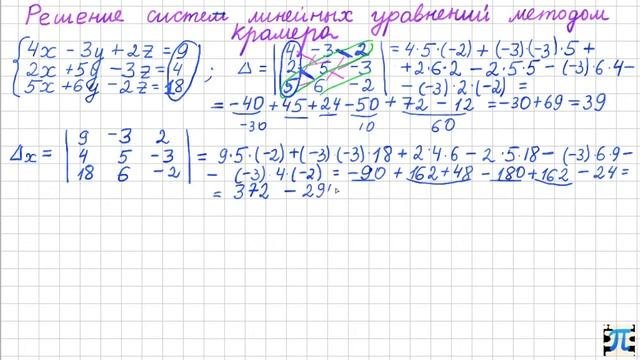 Решение систем линейных уравнений методом
крамера
4x - 3y + 2z = 9
2x + 5y - 3z = 4
5x + 6y - 2z = 18
; Δ =
4 -3 2
2 5 -3
5 6 -2
= 4·5·(-2) + (-3)·(-3)·5 +
+ 2·6·2 - 2·5·5 - (-3)·6·4 -
- (-3)·2·(-2) =
= -40 + 45 + 24 - 50 + 72 - 12 = -30 + 69 = 39
-30 10 60
Δx =
9 -3 2
4 5 -3
18 6 -2
= 9·5·(-2) + (-3)·(-3)·18 + 2·4·6 - 2·5·18 - (-3)·6·9 -
- (-3)·4·(-2) = -90 + 162 + 48 - 180 + 162 - 24 =
= 372 - 29
π